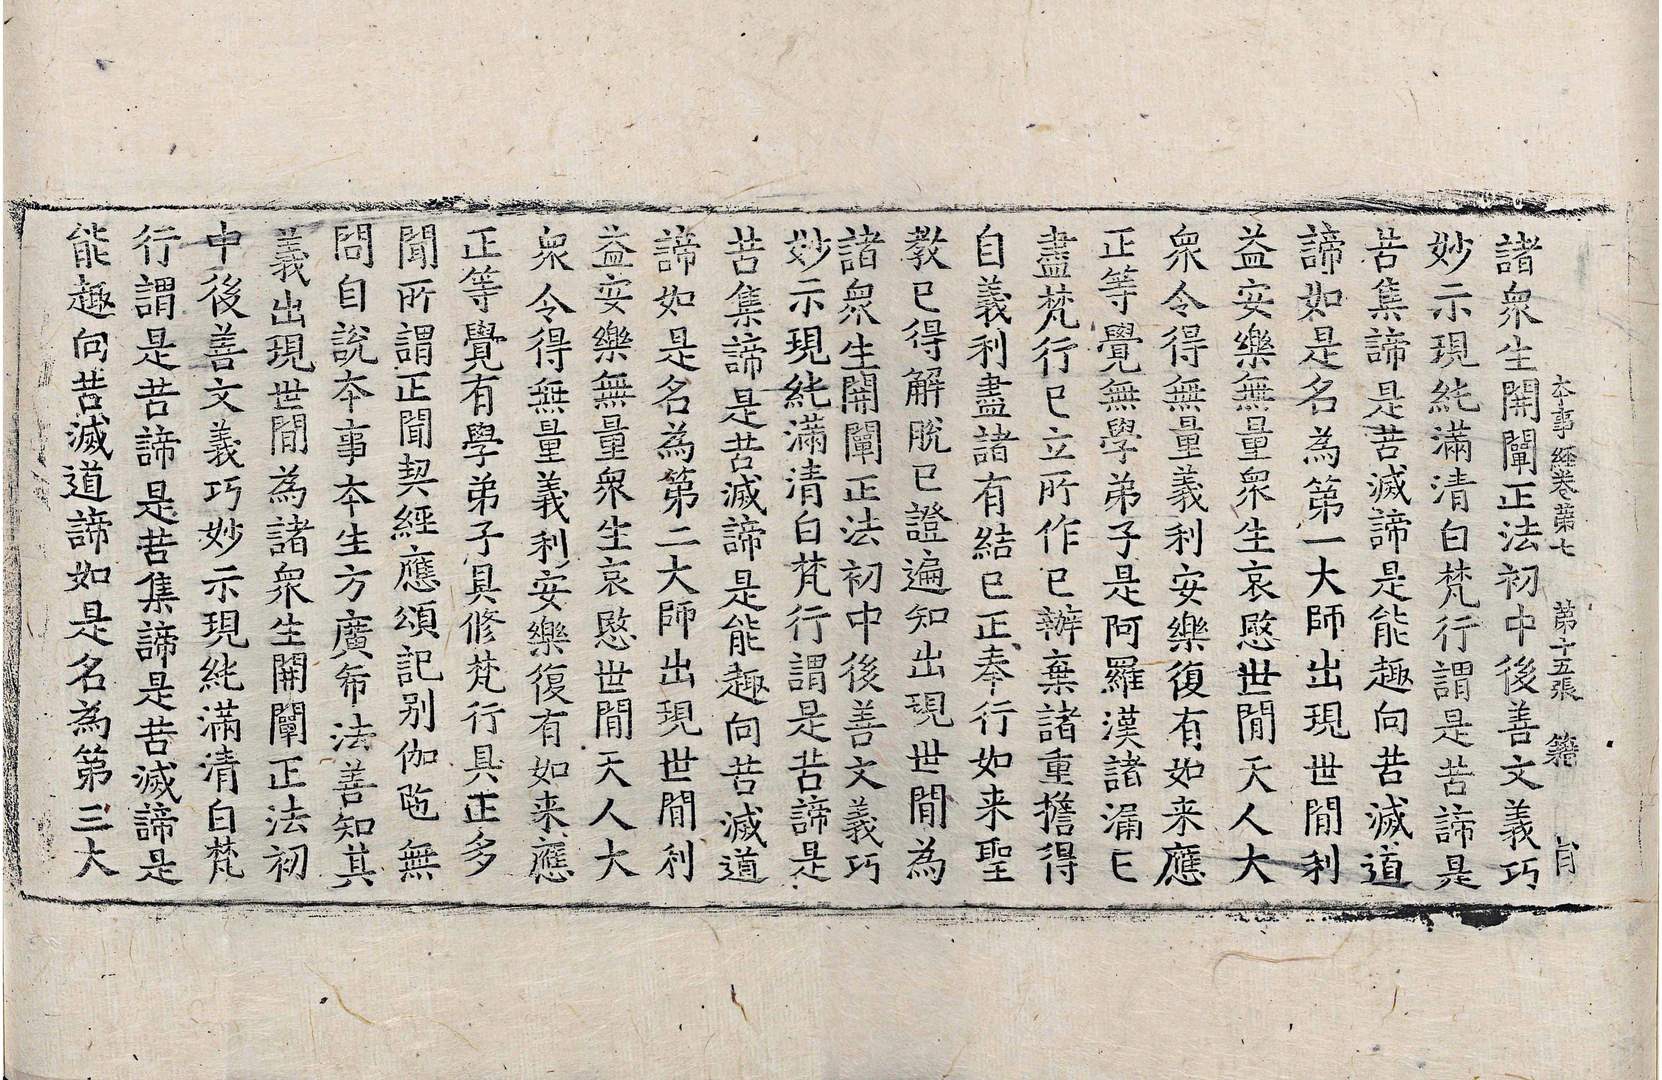 本事經卷第七 第十五張 籍 自
諸衆生開闡正法初中後善文義巧
妙示現純滿清白梵行謂是苦諦是
苦集諦是苦滅諦是能趣向苦滅道
諦如是名為第一大師出現世間利
益安樂無量衆生哀愍世間天人大
衆令得無量義利安樂復有如来應
正等覺無學弟子是阿羅漢諸漏已
盡梵行已立所作已辦棄諸重擔得
自義利盡諸有結已正奉行如来聖
教已得解脫已證遍知出現世間為
諸衆生開闡正法初中後善文義巧
妙示現純滿清白梵行謂是苦諦是
苦集諦是苦滅諦是能趣向苦滅道
諦如是名為第二大師出現世間利
益安樂無量衆生哀愍世間天人大
衆令得無量義利安樂復有如来應
正等覺有學弟子具修梵行具正多
聞所謂正聞契經應頌記别伽陁無
問自說本事本生方廣希法善知其
義出現世間為諸衆生開闡正法初
中後善文義巧妙示現純滿清白梵
行謂是苦諦是苦集諦是苦滅諦是
能趣向苦滅道諦如是名為第三大